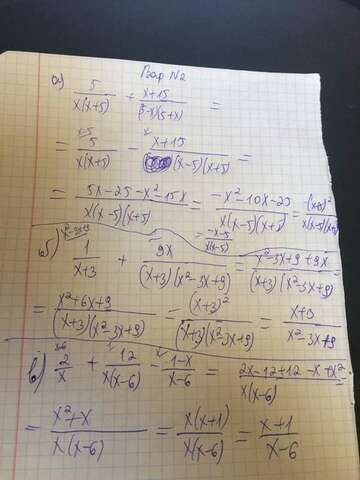 Вар N2
а) 5/(x(x+5)) + (x+15)/((5-x)(5+x)) =
= 5/(x(x+5)) - (x+15)/((x-5)(x+5)) =
= (5x-25-x²-15x)/(x(x-5)(x+5)) = (-x²-10x-25)/(x(x-5)(x+5)) = -(x+5)²/(x(x-5)(x+5))
= (-x-5)/(x(x-5))
б) 1/(x+3) + 9x/((x+3)(x²-3x+9)) = (x²-3x+9+9x)/((x+3)(x²-3x+9))
= (x²+6x+9)/((x+3)(x²-3x+9)) = (x+3)²/((x+3)(x²-3x+9)) = (x+3)/(x²-3x+9)
в) 2/x + 12/(x(x-6)) - (1-x)/(x-6) = (2x-12+12-x+x²)/(x(x-6))
= (x²+x)/(x(x-6)) = x(x+1)/(x(x-6)) = (x+1)/(x-6)